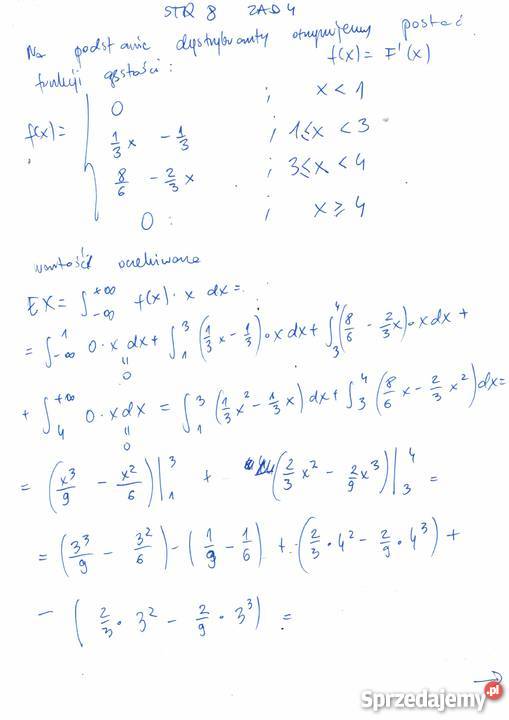 STR 8 ZAD 4
Na podstawie dystrybuanty otrzymujemy postać
funkcji gęstości: f(x) = F'(x)
f(x) = { 0 ; x < 1
1/3 x - 1/3 ; 1 ≤ x < 3
8/6 - 2/3 x ; 3 ≤ x < 4
0 ; x ≥ 4
wartość oczekiwana
EX = ∫_{-∞}^{+∞} f(x) · x dx =
= ∫_{-∞}^{1} 0 · x dx + ∫_{1}^{3} (1/3 x - 1/3) · x dx + ∫_{3}^{4} (8/6 - 2/3 x) · x dx +
"
0
+ ∫_{4}^{+∞} 0 · x dx = ∫_{1}^{3} (1/3 x² - 1/3 x) dx + ∫_{3}^{4} (8/6 x - 2/3 x²) dx =
"
0
= (x³/9 - x²/6) |_{1}^{3} + (2/3 x² - 2/9 x³) |_{3}^{4} =
= (3³/9 - 3²/6) - (1/9 - 1/6) + (2/3 · 4² - 2/9 · 4³) +
- (2/3 · 3² - 2/9 · 3³) =
→
Sprzedajemy.pl